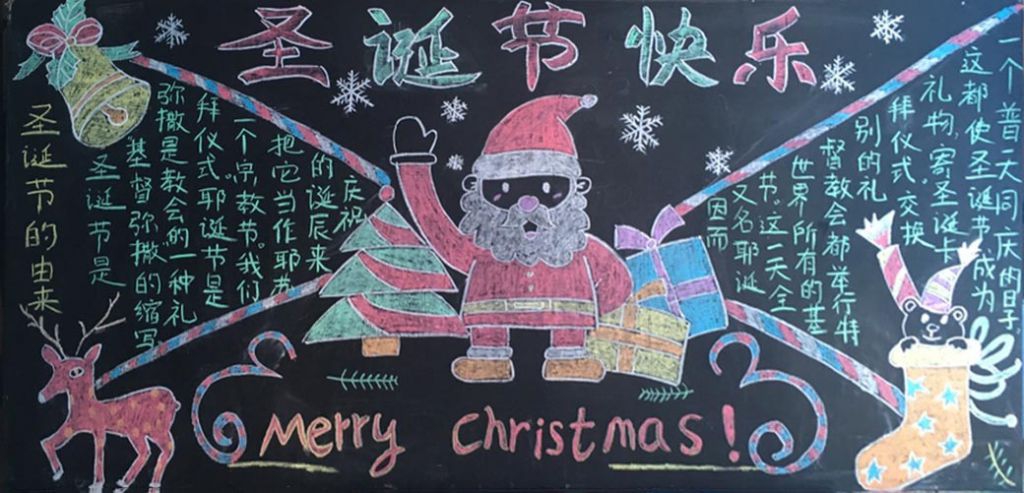 圣诞节快乐
圣诞节的由来
圣诞节是
基督弥撒的缩写
弥撒是教会的一种礼
拜仪式.耶诞节是
一个宗教节。我们
把它当作耶节
的诞辰来
庆祝
因而
又名耶诞
节。这一天全
世界所有的基
督教会都举行特
别的礼
拜仪式。交换
礼物,寄圣诞卡
这都使圣诞节成为
一个普天同庆的日子
Merry christmas!